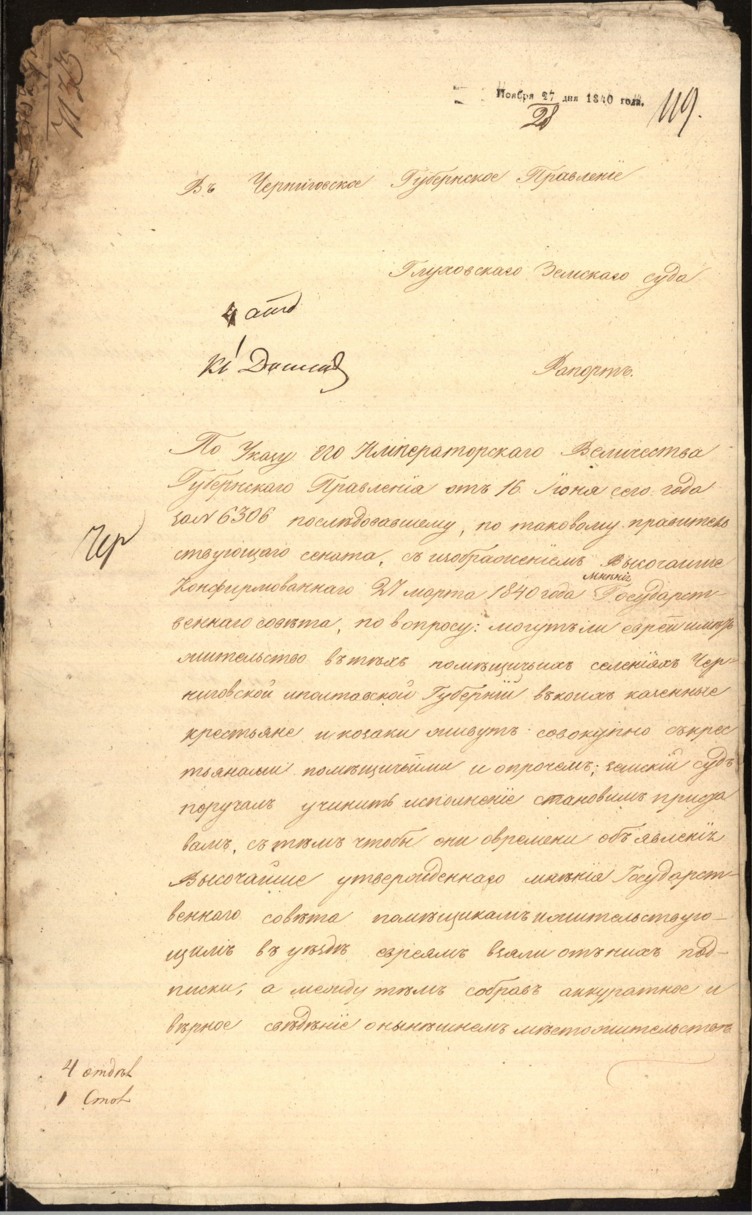 Ноября 27 дня 1840 года.
28
119.
Въ Черниговское Губернское Правленіе
Глуховскаго Земскаго суда
4 отд
Рапортъ.
По Указу ЕГО Императорскаго Величества
Губернскаго Правленія отъ 16 Іюня сего года
за N 6306 послѣдовавшему, по таковому правитель
ствующаго сената, съ изображеніемъ Высочайше
Конфирмованнаго 27 марта 1840 года мнѣнія Государст-
веннаго совѣта, по вопросу: могутъ ли евреи имѣть
жительство въ тѣхъ помѣщичьихъ селеніяхъ Чер-
ниговской и полтавской Губерній въ коихъ казенные
крестьяне и козаки живутъ совокупно съ крес
тьянами помѣщичьими и опрочемъ; земскій судъ
поручалъ учинить исполненіе становымъ приста
вамъ, съ тѣмъ чтобы они овремени объявленія
Высочайше утвержденнаго мнѣнія Государст-
веннаго совѣта помѣщикамъ и жительствую-
щимъ въ уѣздѣ евреямъ взяли отъ нихъ под-
писки, а между тѣмъ собравъ аккуратное и
вѣрное свѣдѣніе о нынѣшнемъ мѣстожительствѣ
4 отдѣл
1 Стол